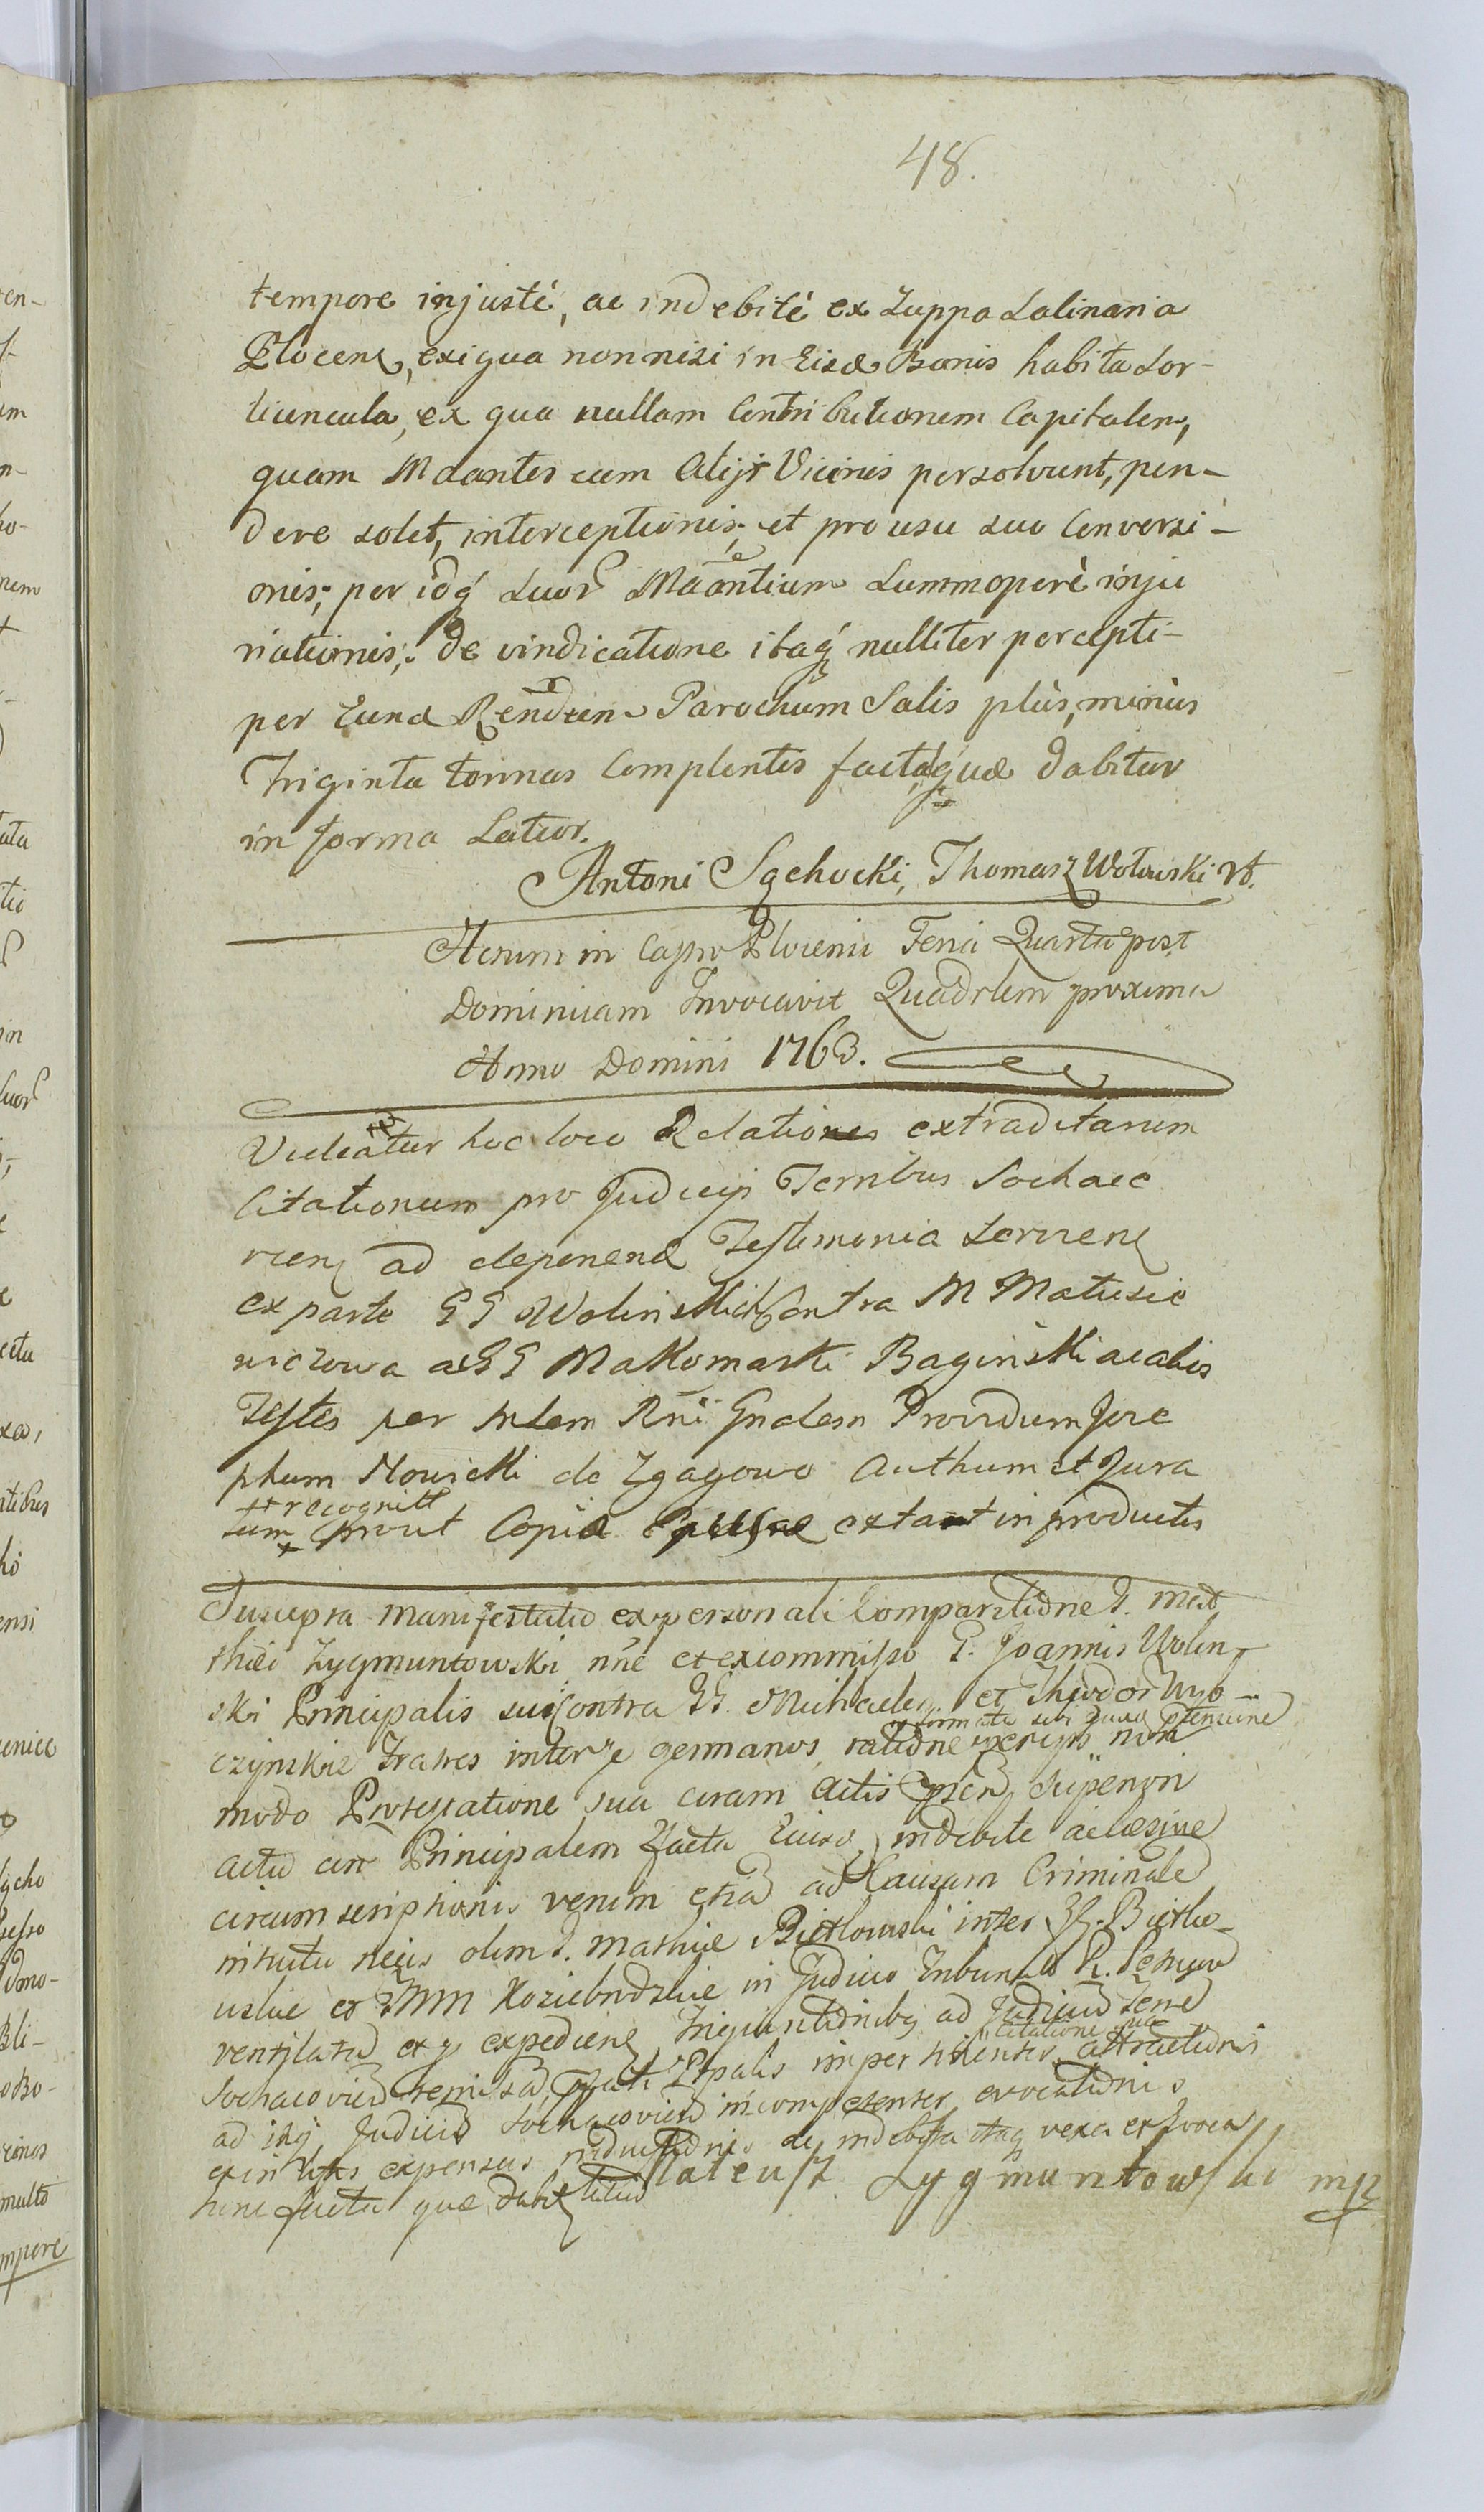 48.
tempore injusté, ac indebité ex Zuppa Salinaria
Plocen, exigua nonnisi in Eisd Bonis habita Sor-
tiuncula, ex qua nullam Contributionem Capitalem,
quam Maantes cum Alijs Vicinis persolvunt, pen-
dere solet, interceptionis; et pro usu suo Conversi-
onis; per idq́ Suor Maantium Summoperè inju
riationis; De vindicatione itaq́ nulliter percepti
per Eund Rendum Parochum Salis plùs, minùs
Triginta tonnas Complentis facta, quæ dabitur
in forma Latior.
Antoni Sąchocki, Thomasz Wołowski
Actum in Castro Plocensi Feria Quarta post
Dominicam Invocavit Quadrlem proxima
Anno Domini 1763.
Videatur hoc loco Relationes extraditarum
Citationum pro Judicijs Terribus Sochacc
vien ad deponend Testimonia Servien
ex parte GG Wolinskich Contra M Matusie
wiczowa a GG Makomaski Baginski ac alios
Testes per Mlem Rni Gnalem Providum Jose
phum Nowicki de Zgagowo Authum et Jura
tum prout Copiæ extant in productis
recognitt
Suscepta manifestatio ex personali Comparitione G. Mat
thiæ Zygmuntowski nne et ex commisso G. Joannis Wolin
ski Principalis sui Contra GG. Michaelem et Theodor Wyb-
czynskie Fratres inter se germanos, ratione non
modo Protestatione sua coram Actis superiori
actu con Principalem facta Eius indebite
circumscriptionis verum etia ad Causam Criminale
olim G. Mathiæ Bietkowski inter GG. Bietko-
wskie et MM Koziebrodzkie in Judicio Tribunali R. Petricov
ventilata et expedien ad Judicia Terre
Sochacovien Ppalis impertinenter attractionis
citatione
ad id Judicia Sochacovien incompetenter evocationis
expensas inductionis de indebita itaq vexa et evoca
tione facta quæ dabit latius
Mateusz Zygmuntowski mp